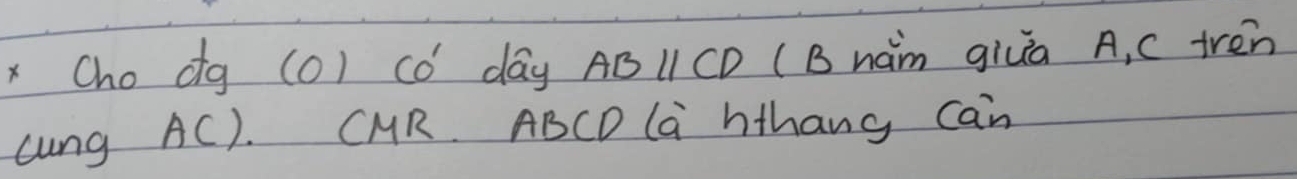 * Cho đtg (O) có dây AB // CD (B nằm giữa A, C trên
cung AC). CMR. ABCD là hthang cân